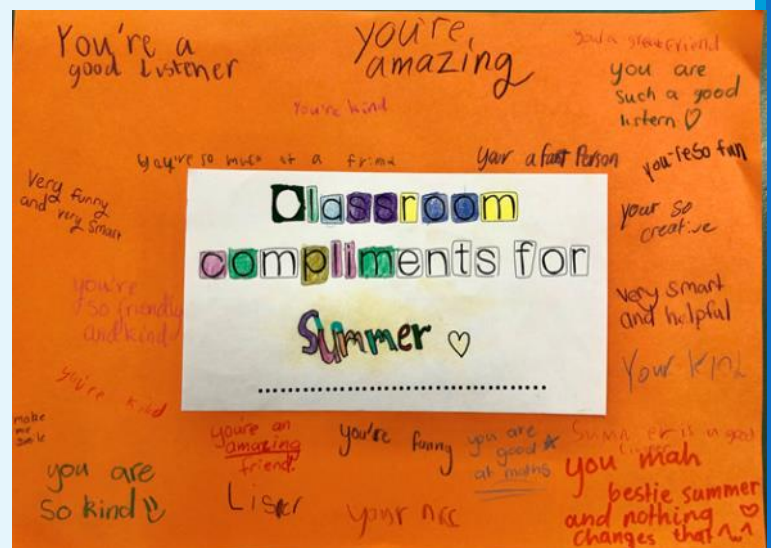 You're a
good Listener
you're
amazing
you're kind
you are
such a good
listern ♡
you're so much of a
your a fast Person
you're so fun
Very funny
and very smart
your so
creative
Classroom
compliments for
Summer ♡
you're
so friendly
and kind
very smart
and helpful
Your kind
you're kind
make
me
smile
you're an
amazing
friend!
you're funny
you are
good ☆
at maths
Summer is a good
you mah
bestie summer
and nothing ♡
changes that ^.^
you are
so kind
your